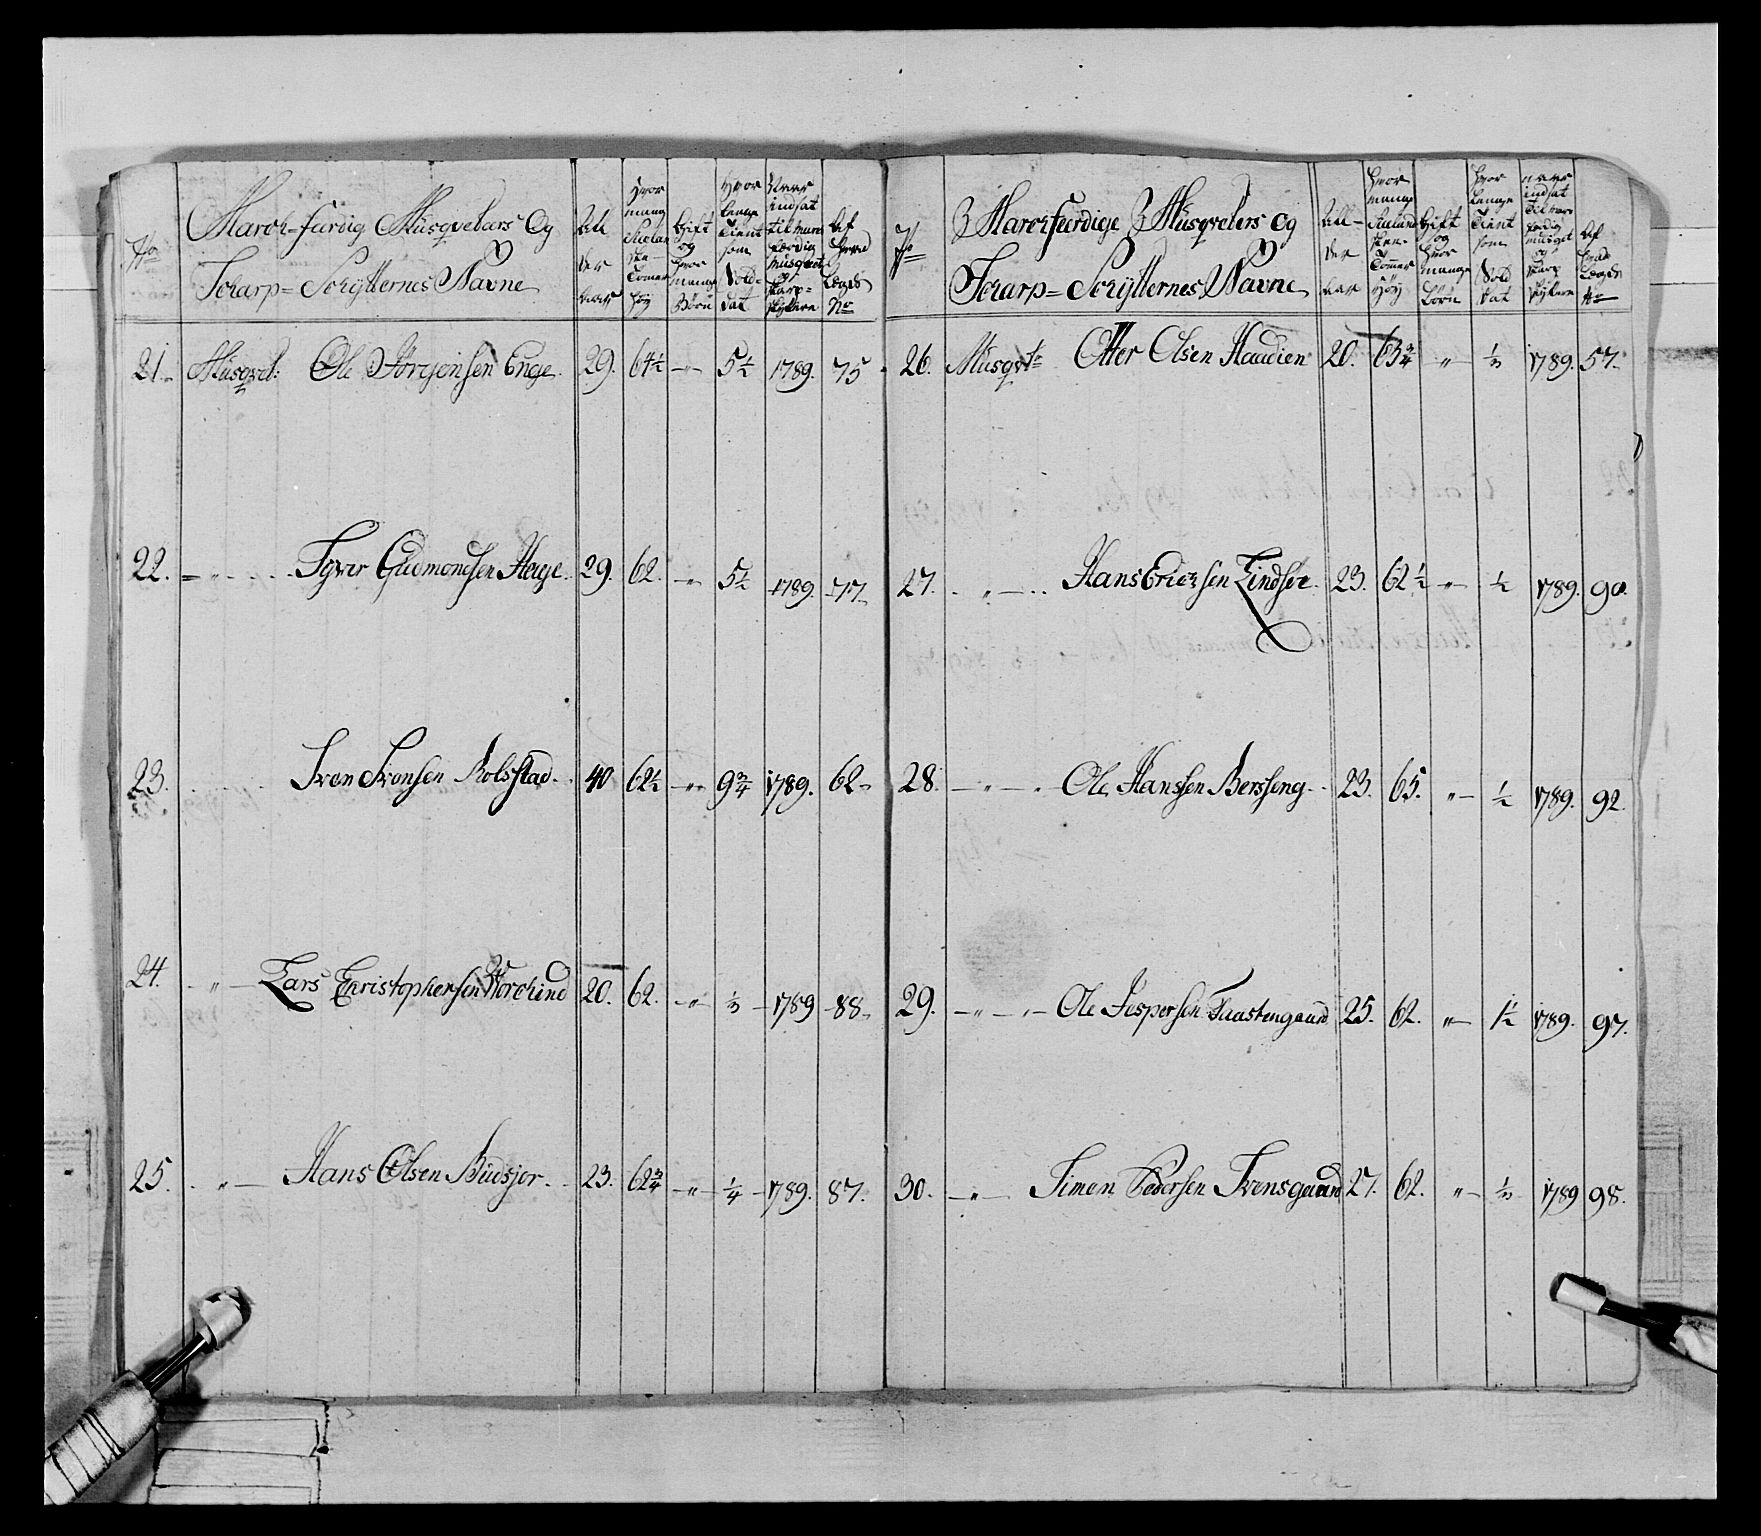 No
March-færdig Musqvetairs Og
Scharp-Schytternes Navne
Al
der
Aar
Hvor
mange
Tommer
høy
Gift
og
hvor
mange
Børn
Hvor
længe
tient
som
Sold-
dat
Naar
indsat
til march
færdig
Musquet
og
Scharp-
skyttere
Af
hvad
Lægds
No
21. Musqvet: Ole Jörgensen Enge. 29. 64½ - " - 5½ 1789. 75
22. - " - Syver Gudmondsen Hage. 29. 62. - " - 5½ 1789. 77.
23. Sven Svensen Rolsstad. 40 62½ - " - 9¾ 1789. 62.
24. - " - Lars Christophersen 20. 62. - " - ⅓ 1789 88.
25. - " - Hans Olsen Budsjor. 23. 62¾ - " - ¼ 1789. 87.
No
Marchfærdige Musqveters og
Scharp-Schytternes Navne
Al-
der
Aar
Hvor
mange
Tommer
høy
Gift
og
hvor
mange
Börn
Hvor
længe
tient
som
Sold
dat
naar
indsat
til mar
færdig
musqvet
og
Scharp
skyttere
Af
hvad
Lægds
No
26. Musqvt. Otter Olsen Haudien 20. 63¾ " - ⅓ 1789. 57.
27. - " - Hans Erichsen Lindsöe. 23. 62½ " - ½ 1789. 90.
28. - " - Ole Hanssen Bersseng. 23. 65. " - ½ 1789. 92.
29. - " - " - Ole Jespersen Taastengaard 25. 62. " - 1½ 1789. 97.
30. - " - Simen Pedersen Svensgaard 27. 62. " - ⅓ 1789 98.